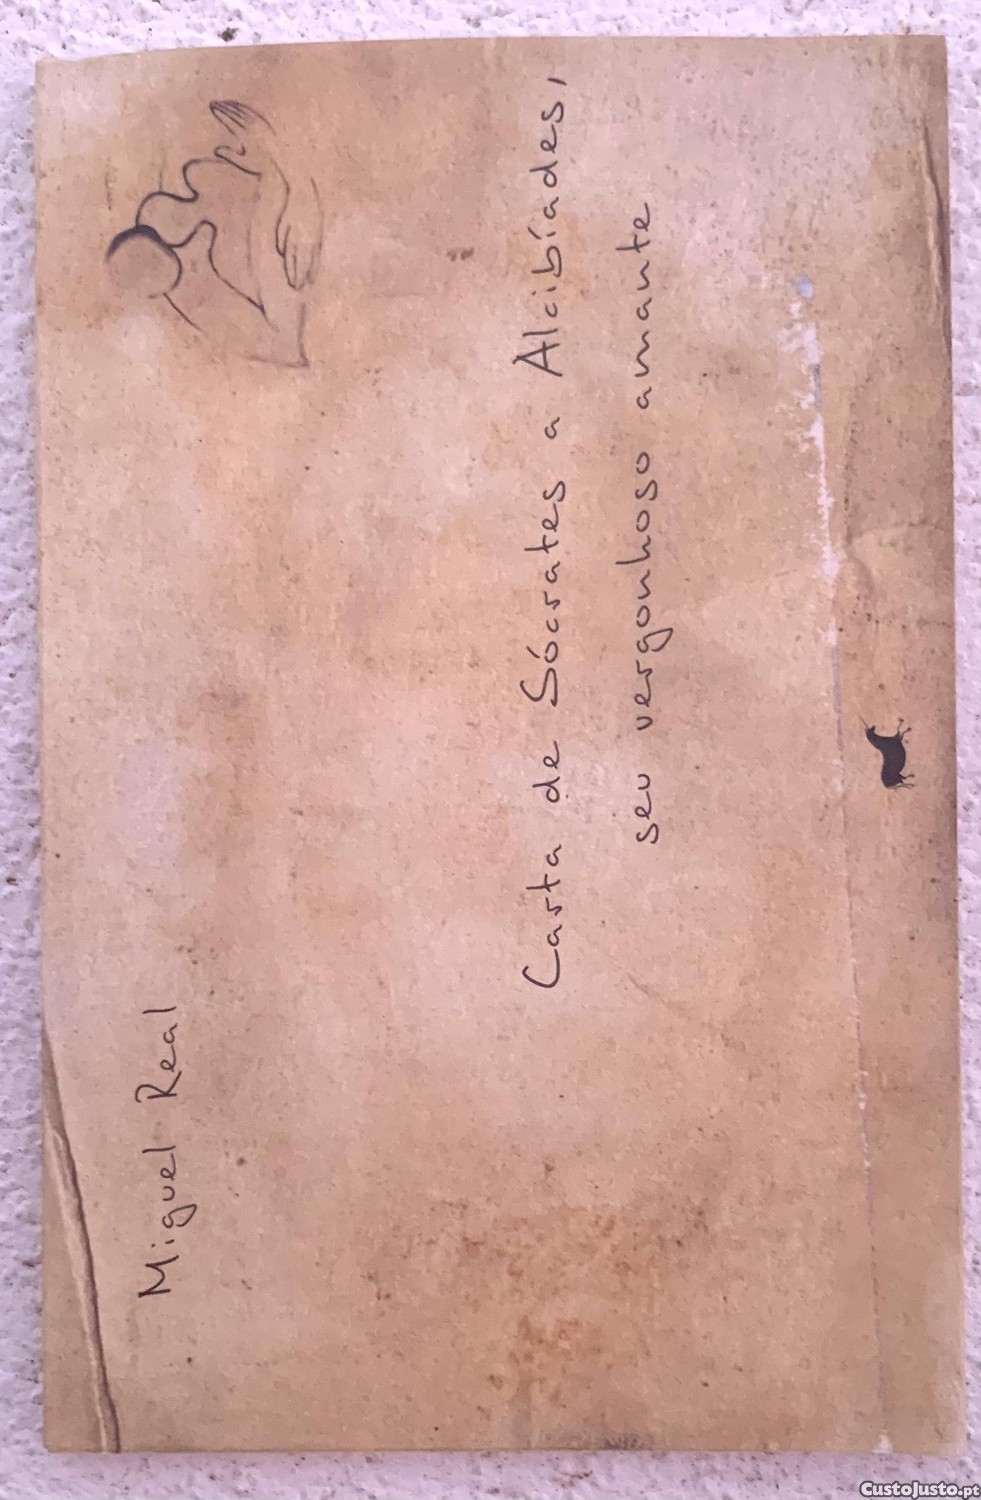 Miguel Real
Carta de Sócrates a Alcibíades,
seu vergonhoso amante
CustoJusto.pt